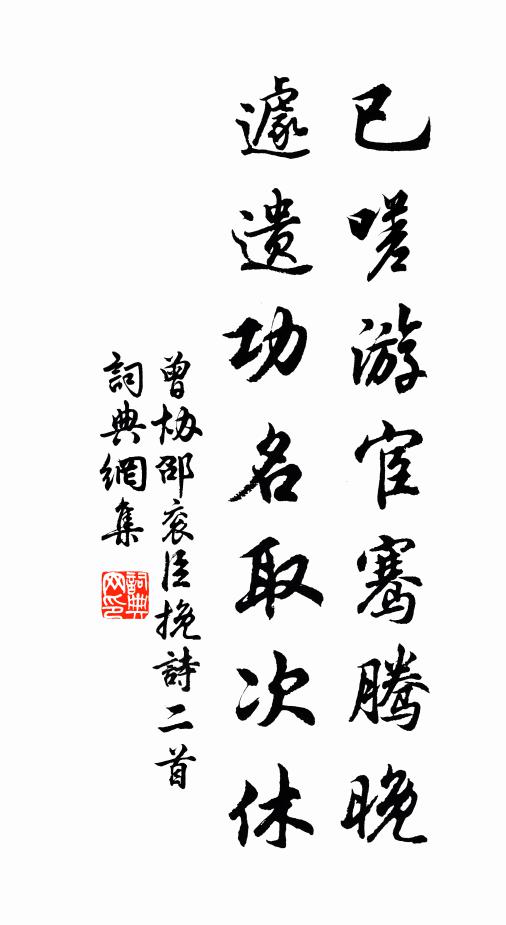 已嗟游宦骞腾晚
遽遗功名取次休
曾协邵衮臣挽詩二首
詞典網集
詞典网印